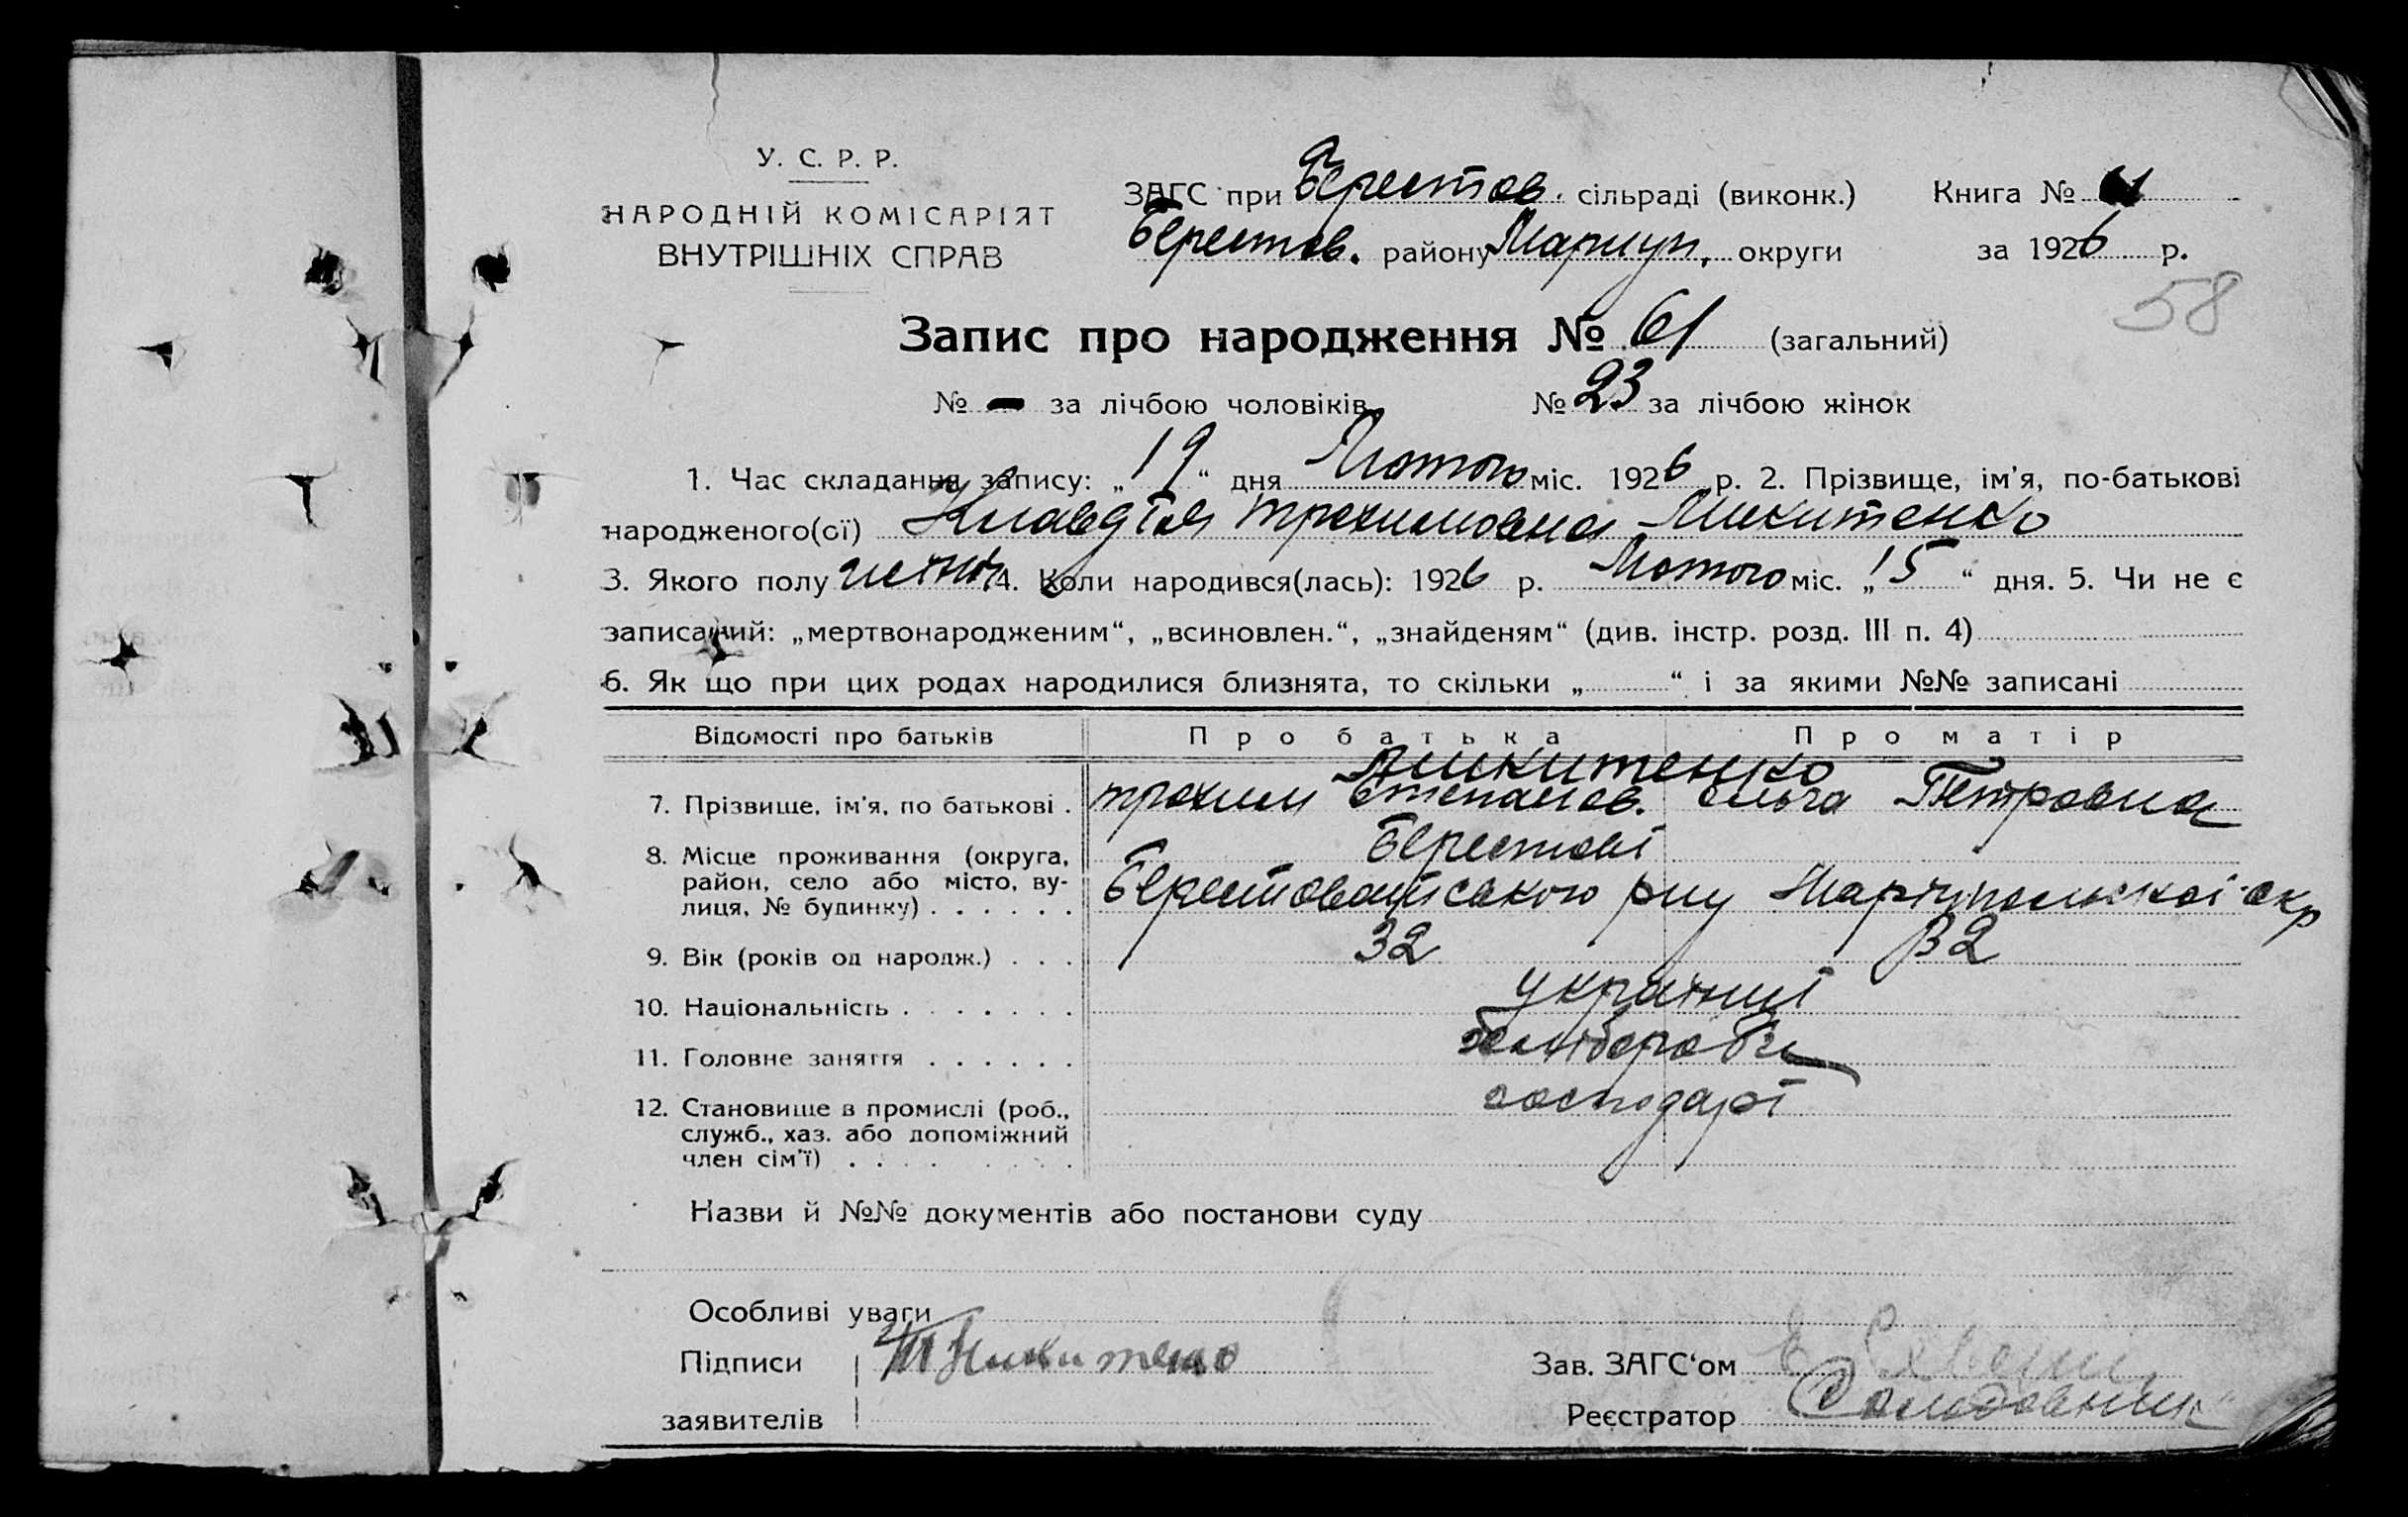 У. С. Р. Р.
НАРОДНІЙ КОМІСАРІЯТ
ВНУТРІШНІХ СПРАВ
ЗАГС при Берестов. сільраді (виконк.) Книга №
Берестов. району Мариуп. округи за 1926 р.
58
Запис про народження № 61 (загальний)
№ — за лічбою чоловіків № 23 за лічбою жінок
1. Час складання запису: „19“ дня Лютого міс. 1926 р. 2. Прізвище, ім'я, по-батькові
народженого(ої) Клавдія Трохимовна Микитенко
3. Якого полу 4. Коли народився(лась): 1926 р. Лютого міс. „15“ дня. 5. Чи не є
записаний: „мертвонародженим“, „всиновлен.“, „знайденям“ (див. інстр. розд. III п. 4)
6. Як що при цих родах народилися близнята, то скільки „ “ і за якими №№ записані
Відомості про батьків Про батька Про матір
Микитенко
7. Прізвище, ім'я, по батькові . Трохим Степанов. Ольга Петровна
8. Місце проживання (округа, Берестові
район, село або місто, ву- Берестоватського рну Маріупольскоі окр
лиця, № будинку) . . . . . .
9. Вік (років од народж.) . . . 32 32
10. Національність . . . . . . . українці
11. Головне заняття . . . . . . хлібороби
12. Становище в промислі (роб., господарі
служб., хаз. або допоміжний
член сім'ї) . . . . . . . .
Назви й №№ документів або постанови суду
Особливі уваги
Підписи Микитенко Зав. ЗАГС‘ом
заявителів Реєстратор Солодовник